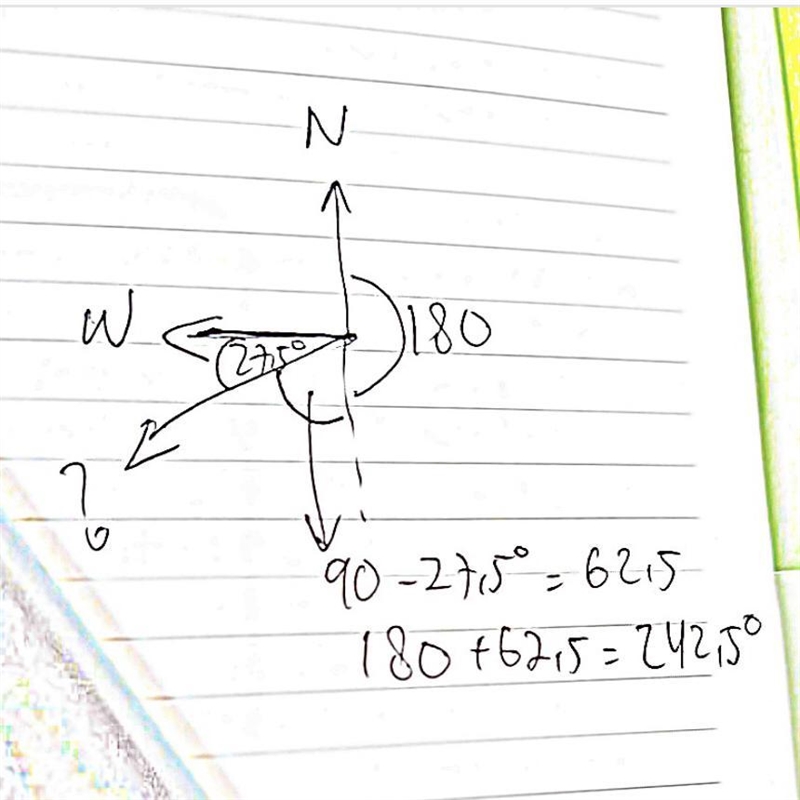 N
180
W
27,5°
?
90 - 27,5° = 62,5
180 + 62,5 = 242,5°